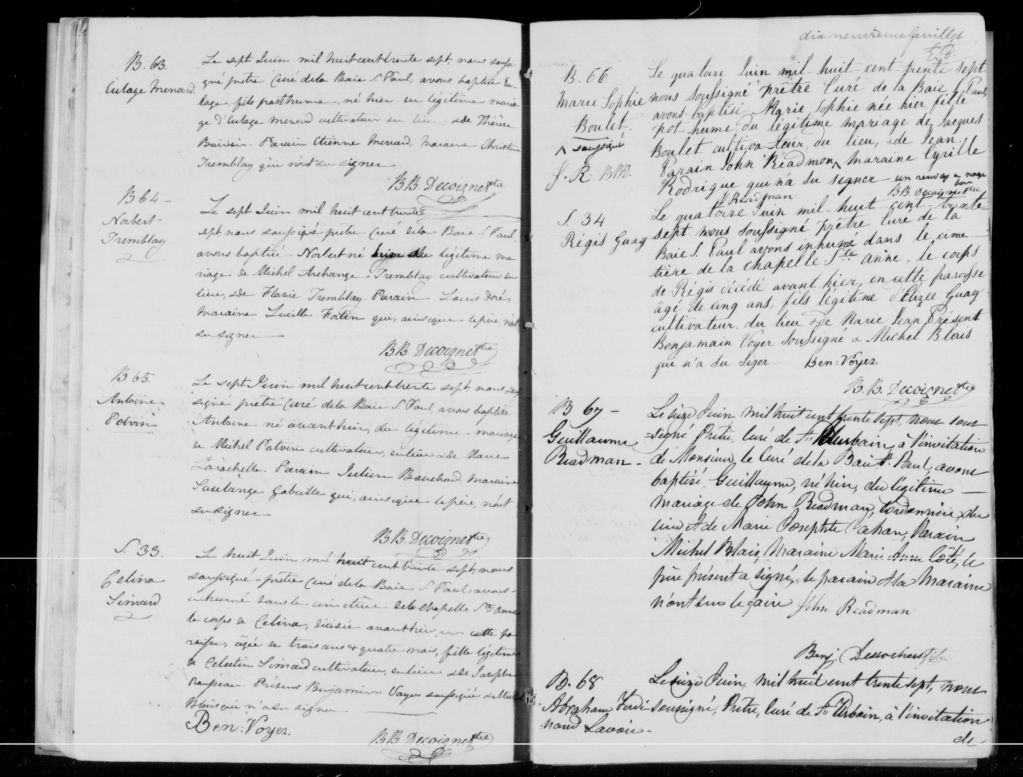 B. 63.
Eulage Menard
Le sept Juin mil huit cent trente sept nous sous
signé prêtre Curé de la Baie St Paul, avons baptisé Eu
lage, fils posthume, né hier du légitime maria
ge d'Eulage Menard cultivateur du lieu & de Thérèse
Parain Etienne Menard, maraine Christine
Tremblay qui n'ont su signer
B.B. Decoigne ptre
B 64 —
Norbert
Tremblay
Le sept Juin mil huit cent trente
sept nous soussigné prêtre Curé de la Baie St Paul
avons baptisé Norbert né légitime ma
riage de Michel Archange Tremblay cultivateur du
lieu, & de Flavie Tremblay. Parain Louis Doré,
maraine Lucille Fortin qui, ainsi que le père, n'ont
su signer
B.B. Decoigne ptre
B 65.
Antoine
Potvin
Le sept Juin mil huit cent trente sept nous sous
signé prêtre Curé de la Baie St Paul avons baptisé
Antoine né avant hier, du légitime mariage
de Michel Potvin cultivateur, du lieu & de Marie
Parain Julien Bouchard maraine
Solange Gobeille qui, ainsi que le père, n'ont
su signer
B.B. Decoigne ptre
S. 33.
Celina
Simard
Le huit Juin mil huit cent trente sept, nous
soussigné prêtre Curé de la Baie St Paul, avons
inhumé dans le cimetière de la chapelle Ste Anne
le corps de Celina, décédée avant hier, en cette pa
roisse, agée de trois ans & quatre mois, fille légitime
de Célestin Simard cultivateur, du lieu & de Josephte
Présens Benjamin Voyer soussigné & Michel
Blais qui n'a su signer
Ben: Voyer.
B.B. Decoigne ptre
dix neuvieme feuillet
B. 66
Marie Sophie
Boulet.
^ soussigné
J. R. BBD.
Le quatorze Juin mil huit cent trente sept
nous soussigné prêtre Curé de la Baie St Paul
avons baptisé Marie Sophie née hier fille
posthume, du légitime mariage de Jacques
Boulet cultivateur, du lieu, & de Jean.
Parain John Readman ^ Maraine Cyrille
Rodrigue qui n'a su signer — un renvoi en marge
bon
J Readman
B.B. Decoigne ptre
S 34
Régis Guay
Le quatorze Juin mil huit cent trente
sept nous soussigné prêtre Curé de la
Baie S. Paul avons inhumé dans le cime
tière de la chapelle Ste Anne, le corps
de Régis décédé avant hier, en cette paroisse
âgé de cinq ans, fils légitime d'Elizée Guay
cultivateur du lieu & de Marie Jean Présent
Benjamain Voyer soussigné & Michel Blais
qui n'a su Siger Ben: Voyer
B.B. Decoigne ptre
B 67 —
Guillaume
Readman —
Le seize Juin, mil huit cent trente sept, nous sous
signé Prêtre, Curé de St Urbain, à l'invitation
de Monsieur, le Curé de la Baie St Paul, avons
baptisé, Guillaume, né hier, du légitime —
mariage de John Readman, Cordonnier, du
lieu & de Marie Josephte Cahan, Parain
Michel Blais, Maraine Marie Anne Côté, le
père présent a signé, le parain & la Maraine
n'ont su le faire John Readman
B. 68
Abraham Ferdi
nand Lavoie —
Le seize Juin, mil huit cent trente sept, nous
soussigné, Prêtre, Curé de St Urbain, à l'invitation
de —